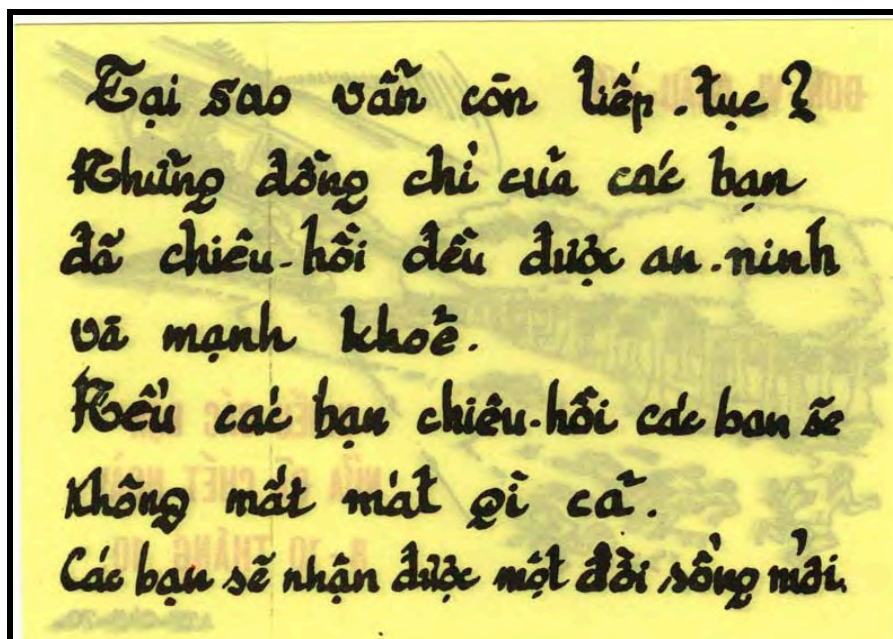 Tại sao vẫn còn tiếp-tục?
Những đồng chí của các bạn
đã chiêu-hồi đều được an-ninh
và mạnh khoẻ.
Nếu các bạn chiêu-hồi các bạn sẽ
không mất mát gì cả.
Các bạn sẽ nhận được một đời sống mới.